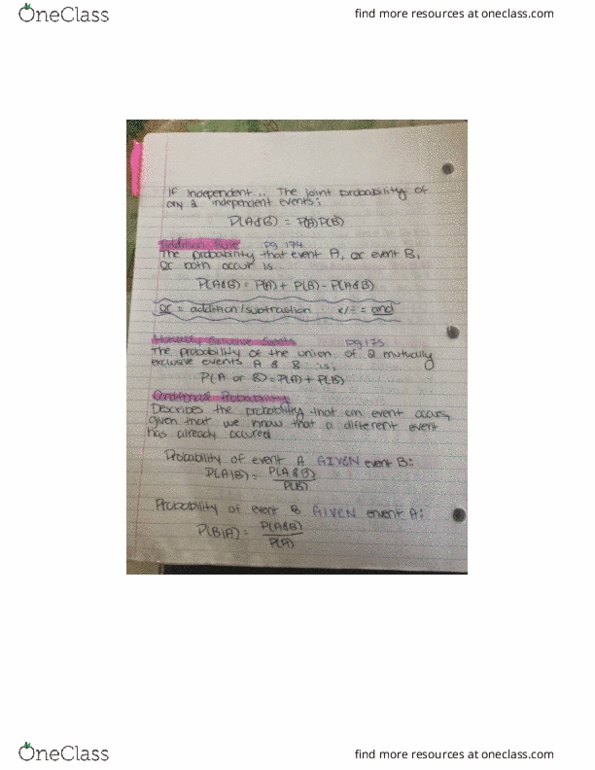 OneClass
find more resources at oneclass.com
If independent... The joint probability of
any 2 independent events:
P(A&B) = P(A)P(B)
Addition Rule pg 174
The probability that event A, or event B,
or both occur is
P(A&B) = P(A) + P(B) - P(A&B)
or = addition/subtraction x/÷ = and
Mutually Exclusive Events pg 175
The probability of the union of 2 mutually
exclusive events A & B is,
P(A or B) = P(A) + P(B)
Conditional Probability
Describes the probability that an event occurs,
given that we know that a different event
has already occured
Probability of event A GIVEN event B:
P(A|B) = P(A&B)
P(B)
Probability of event B GIVEN envent A:
P(B|A) = P(A&B)
P(A)
OneClass
find more resources at oneclass.com